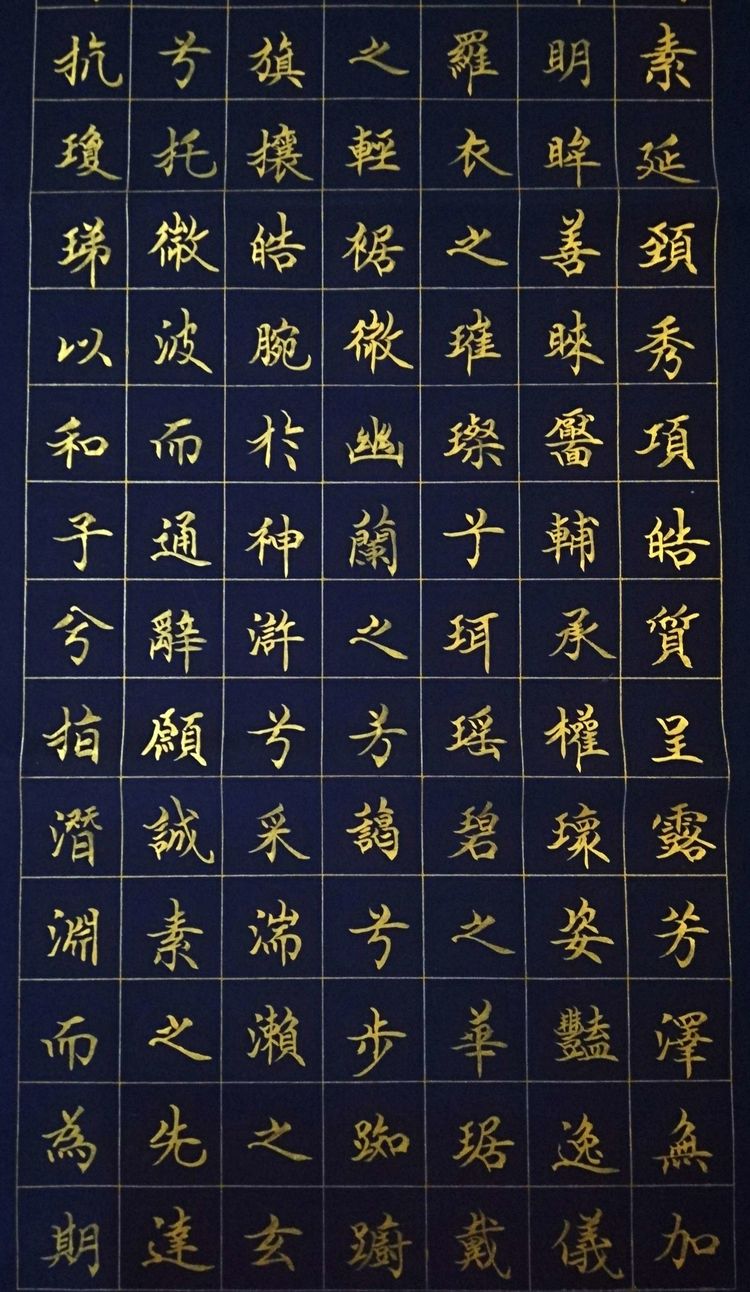 素延頸秀項皓質呈露芳澤無加
明眸善睞靨輔承權瓌姿豔逸儀
羅衣之璀璨兮珥瑶碧之華琚戴
之輕裾微幽蘭之芳藹兮步踟躕
旗攘皓腕於神滸兮采湍瀨之玄
兮托微波而通辭願誠素之先達
抗瓊珶以和予兮指潛淵而為期